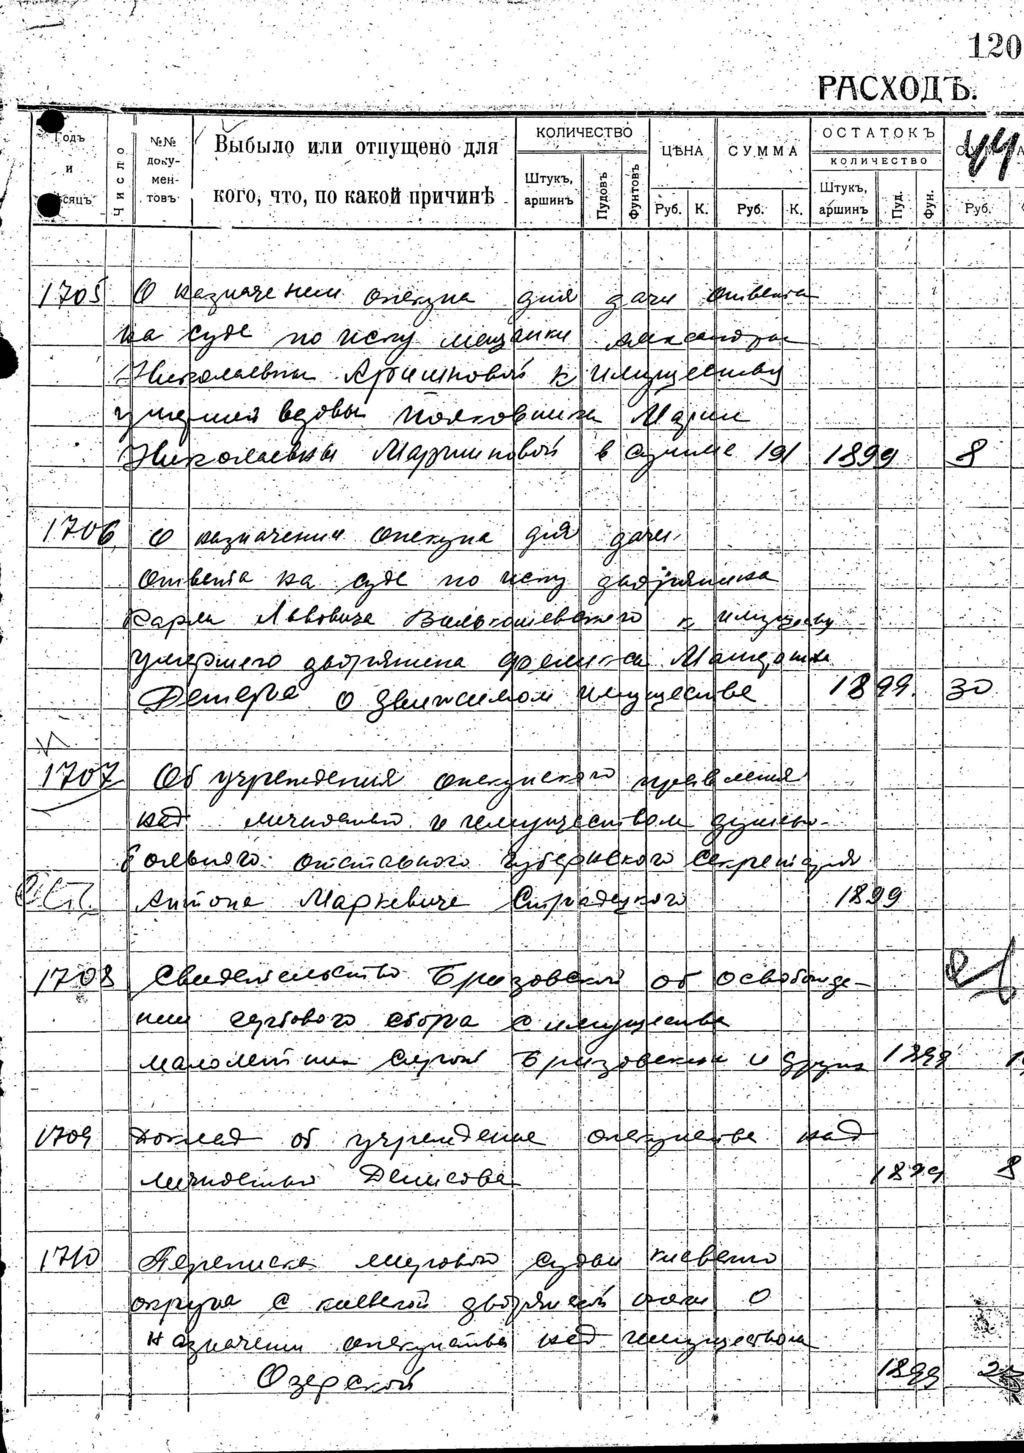 120
РАСХОДЪ.
44
Годъ и мѣсяцъ
Число
№№ доку-мен-товъ
Выбыло или отпущено для
кого, что, по какой причинѣ
КОЛИЧЕСТВО
Штукъ, аршинъ
Пудовъ
Фунтовъ
ЦѢНА
Руб. К.
СУММА
Руб. К.
ОСТАТОКЪ
КОЛИЧЕСТВО
Штукъ, аршинъ
Пуд.
Фун.
Руб.
1705 О назначении опекуна для дачи ответа
на суде по иску мещанки Александры
Николаевны к имуществу
умершей вдовы полковника Марии
Николаевны Мартыновой в сумме 191 1899 8
1706 О назначении опекуна для дачи
ответа на суде по иску дворянина
Карла Львовича к имуществу
умершего дворянина Феликса
о движимом имуществе 1899. 30
1707 Об учреждения опекунского правления
над личностью и имуществом душевно-
больного отставного губернского секретаря
Антона Маркевича Страдецкого 1899
1708 Свидетельство Бржозовской об освобожде-
нии гербового сбора с имущества
малолетних Бржозовских и других 1899
1709 Доклад об учреждение опекунства над
личностью Денисова 1899 8
1710 Переписка мирового судьи киевского
округа с киевской дворянской опеки о
назначении опекунства над имуществом
Озерской 1899